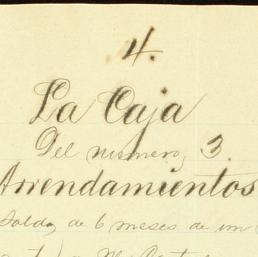 4.
La Caja
Del numero, 3.
Arrendamientos
Saldo, de 6 meses de un